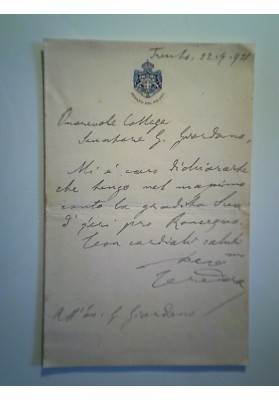 Trento, 22.9.921
SENATO DEL REGNO
Onorevole Collega
Senatore G. Giordano,
Mi è caro dichiararle
che tengo nel massimo
conto la gradita Sua
d'ieri pro Roncegno.
Con cordiali saluti
All'on. G. Giordano